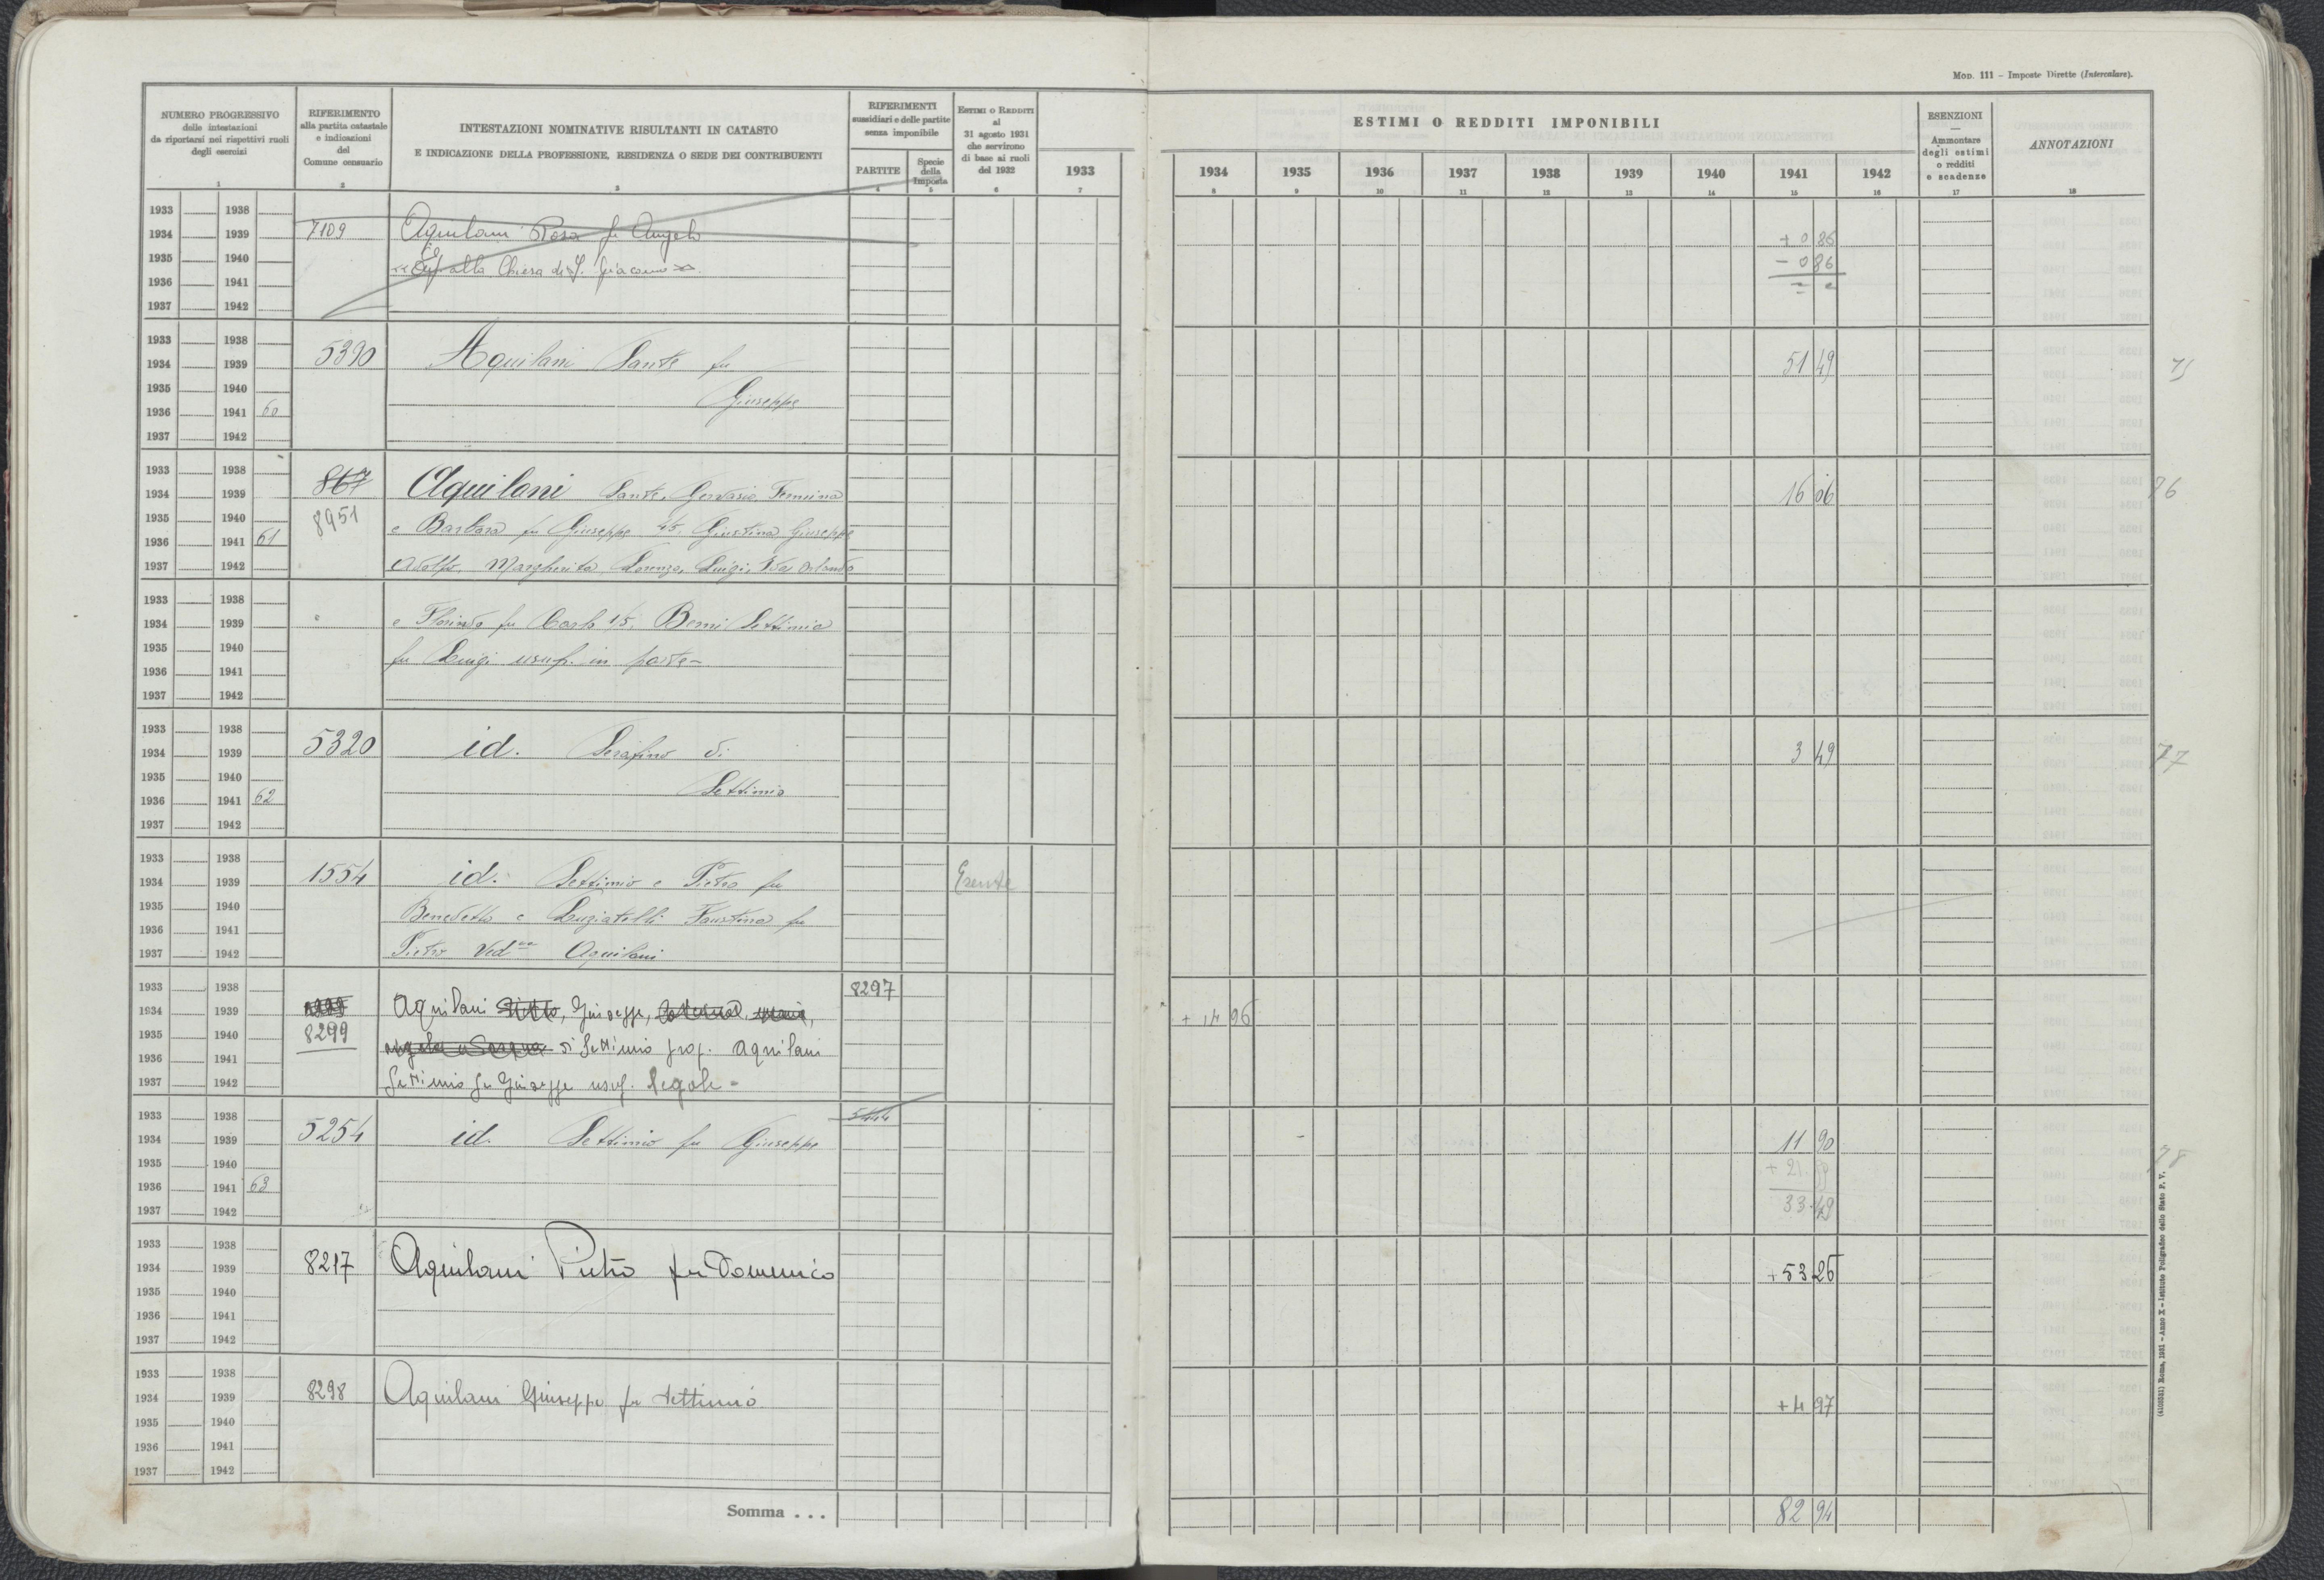 Mod. 111 – Imposte Dirette (Intercalare).
NUMERO PROGRESSIVO
delle intestazioni
da riportarsi nei rispettivi ruoli
degli esercizi
RIFERIMENTO
alla partita catastale
e indicazioni
del
Comune censuario
INTESTAZIONI NOMINATIVE RISULTANTI IN CATASTO
E INDICAZIONE DELLA PROFESSIONE, RESIDENZA O SEDE DEI CONTRIBUENTI
RIFERIMENTI
sussidiari e delle partite
senza imponibile
PARTITE
Specie
della
Imposta
Estimi o Redditi
al
31 agosto 1931
che servirono
di base ai ruoli
del 1932
ESTIMI O REDDITI IMPONIBILI
1933 1934 1935 1936 1937 1938 1939 1940 1941 1942
ESENZIONI
—
Ammontare
degli estimi
o redditi
e scadenze
ANNOTAZIONI
1 2 3 4 5 6 7 8 9 10 11 12 13 14 15 16 17 18
1933 1938
1934 1939 7109 Aquilani Rosa fu Angelo + 0 86
1935 1940 alla Chiesa di S. Giacomo - 0 86
1936 1941
1937 1942
1933 1938
1934 1939 5390 Aquilani Sante fu 51 49 75
1935 1940 Giuseppe
1936 1941 60
1937 1942
1933 1938
1934 1939 867 Aquilani Sante, Gervasio, Femina 16 06 76
1935 1940 8951 e Barbara fu Giuseppe 4/5, Giustina, Giuseppe
1936 1941 61
1937 1942 Adolfo, Margherita, Lorenzo, Luigi, Ida Orlando
1933 1938
1934 1939 e Florindo fu Carlo 1/5, Berni Settimia
1935 1940
1936 1941 fu Luigi usuf. in parte –
1937 1942
1933 1938
1934 1939 5320 id. Serafino di 3 49 77
1935 1940 Settimio
1936 1941 62
1937 1942
1933 1938
1934 1939 1554 id. Settimio e Pietro fu Esente
1935 1940 Benedetto e Luziatelli Faustina fu
1936 1941
1937 1942 Pietro Ved.va Aquilani
1933 1938 8297
1934 1939 Aquilani Giuseppe, + 14 96
1935 1940 8299 di Settimio prop. Aquilani
1936 1941
1937 1942 Settimio fu Giuseppe usuf. legale =
1933 1938 5444
1934 1939 5254 id. Settimio fu Giuseppe 11 90
1935 1940 + 21 59 78
1936 1941 63 33 49
1937 1942
1933 1938
1934 1939 8217 Aquilani Pietro fu Domenico + 53 26
1935 1940
1936 1941
1937 1942
1933 1938
1934 1939 8298 Aquilani Giuseppe fu Settimio + 4 97
1935 1940
1936 1941
1937 1942
Somma . . . 82 94
(4103531) Roma, 1931 – Anno X – Istituto Poligrafico dello Stato P. V.